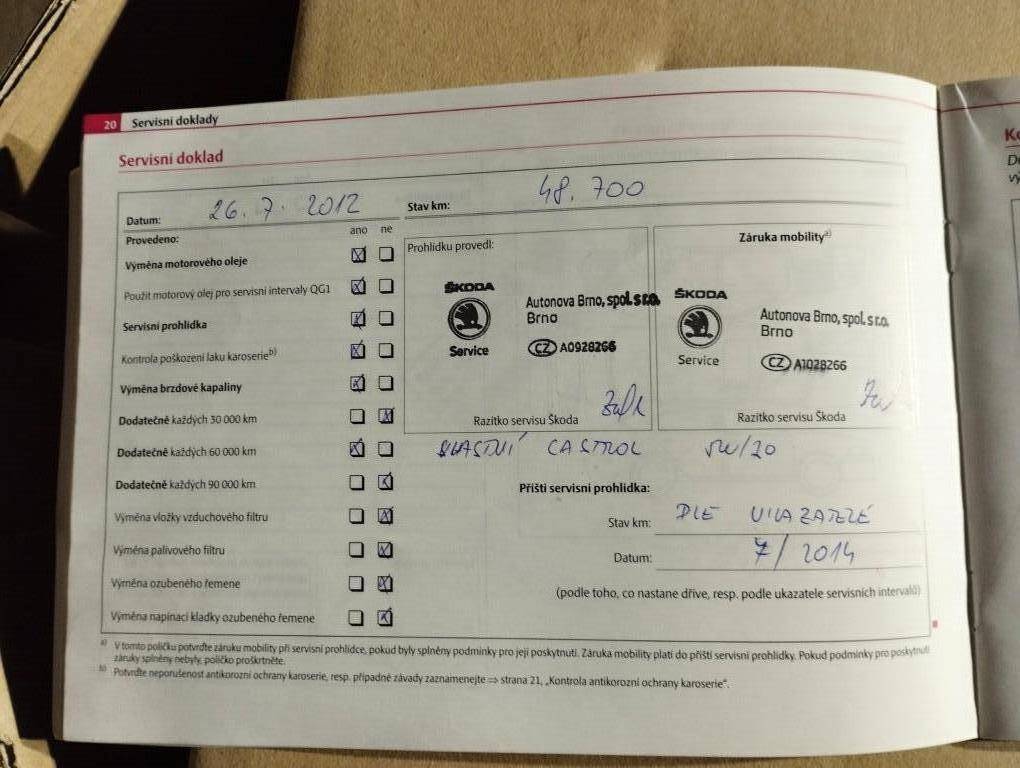 20 Servisní doklady
Servisní doklad
Datum: 26. 7. 2012 Stav km: 48. 700
Provedeno: ano ne
Výměna motorového oleje
Použit motorový olej pro servisní intervaly QG1
Servisní prohlídka
Kontrola poškození laku karoserie b)
Výměna brzdové kapaliny
Dodatečně každých 30 000 km
Dodatečně každých 60 000 km
Dodatečně každých 90 000 km
Výměna vložky vzduchového filtru
Výměna palivového filtru
Výměna ozubeného řemene
Výměna napínací kladky ozubeného řemene
Prohlídku provedl:
ŠKODA
Service
Autonova Brno, spol. s r.o.
Brno
CZ A0928266
Razítko servisu Škoda
Záruka mobility a)
ŠKODA
Service
Autonova Brno, spol. s r.o.
Brno
CZ A1028266
Razítko servisu Škoda
VLASTNÍ CASTROL 5W/30
Příští servisní prohlídka:
Stav km: DLE UKAZATELE
Datum: 7/2014
(podle toho, co nastane dříve, resp. podle ukazatele servisních intervalů)
a) V tomto políčku potvrďte záruku mobility při servisní prohlídce, pokud byly splněny podmínky pro její poskytnutí. Záruka mobility platí do příští servisní prohlídky. Pokud podmínky pro poskytnutí
záruky splněny nebyly, políčko proškrtněte.
b) Potvrďte neporušenost antikorozní ochrany karoserie, resp. případné závady zaznamenejte ⇒ strana 21, „Kontrola antikorozní ochrany karoserie“.